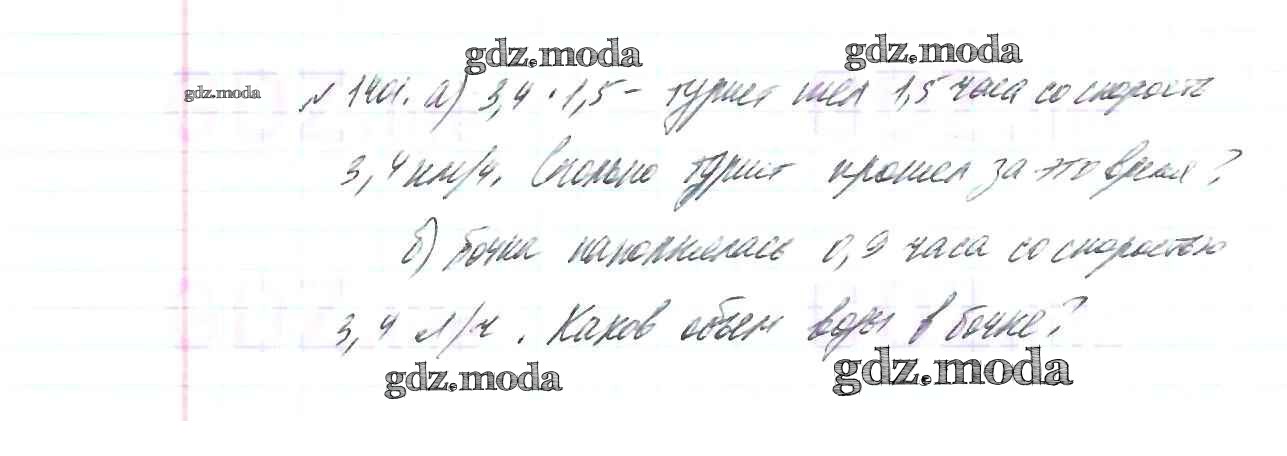 gdz.moda gdz.moda
gdz.moda № 1401. а) 3,4 · 1,5 – турист шел 1,5 часа со скорость
3,4 км/ч. Сколько турист прошел за это время?
б) бочка наполнялась 0,9 часа со скоростью
3,4 л/ч. Каков объем воды в бочке?
gdz.moda gdz.moda